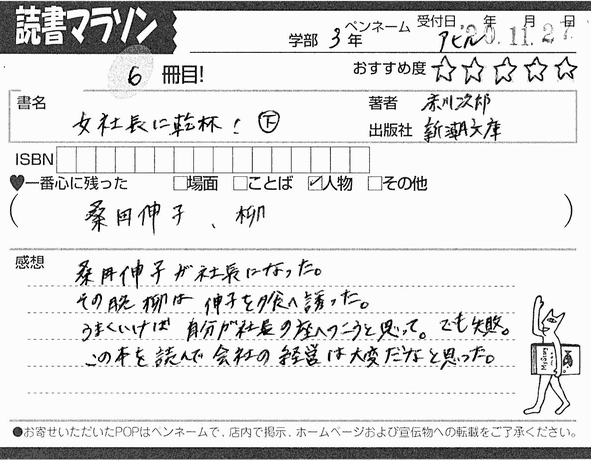 読書マラソン
学部 3年 ペンネーム アヒル 受付日 '20.11.27 年 月 日
6 冊目! おすすめ度 ☆☆☆☆☆
書名 女社長に乾杯! 下
著者 赤川次郎
出版社 新潮文庫
ISBN
♥一番心に残った □場面 □ことば ☑人物 □その他
( 桑田伸子、柳 )
感想
桑田伸子が社長になった。
その晩柳は伸子を夕食へ誘った。
うまくいけば自分が社長の座へつこうと思って。でも失敗。
この本を読んで会社の経営は大変だなと思った。
●お寄せいただいたPOPはペンネームで、店内で掲示、ホームページおよび宣伝物への転載をご了承ください。